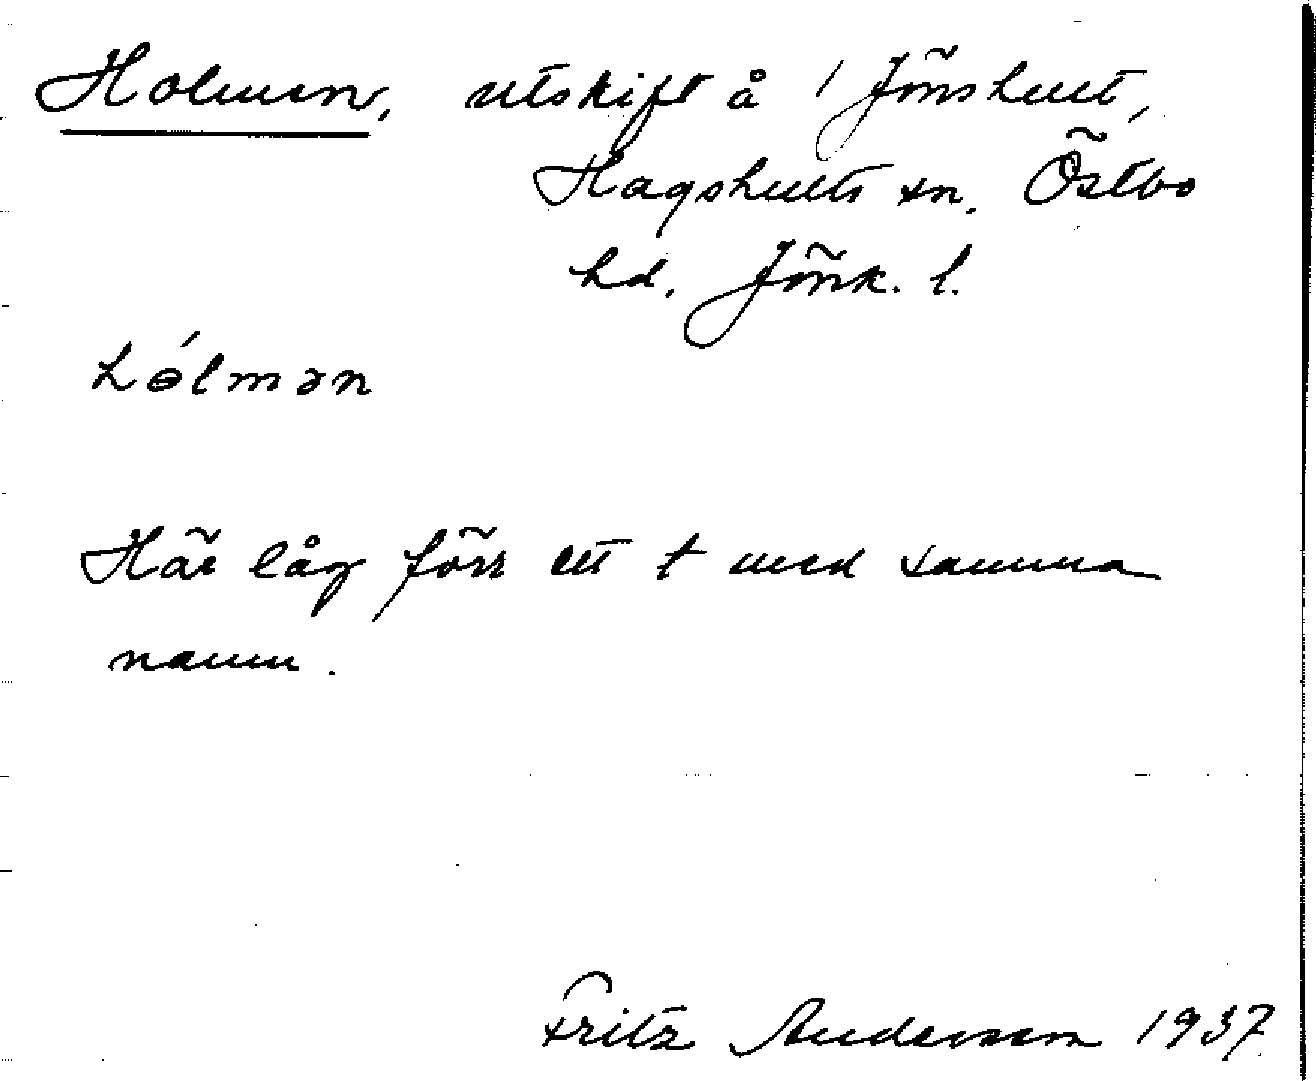 Holmen, utskift å 1 Jönshult,
Hagshults sn. Östbo
hd. Jönk. l.
hólmən
Här låg förr ett t med samma
namn.
Fritz Andersson 1937